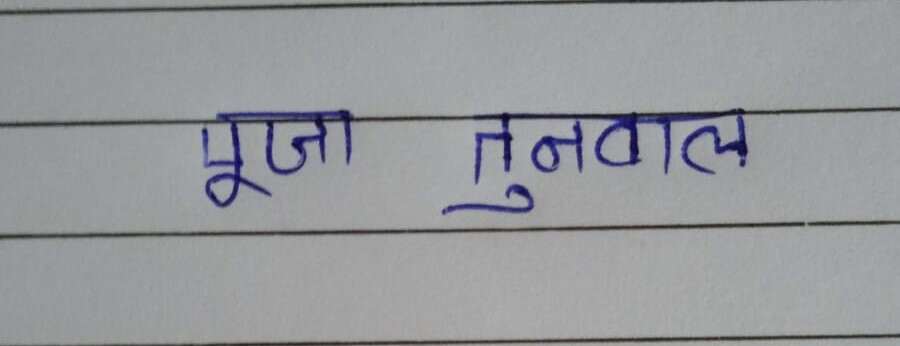 पूजा तुनवाल